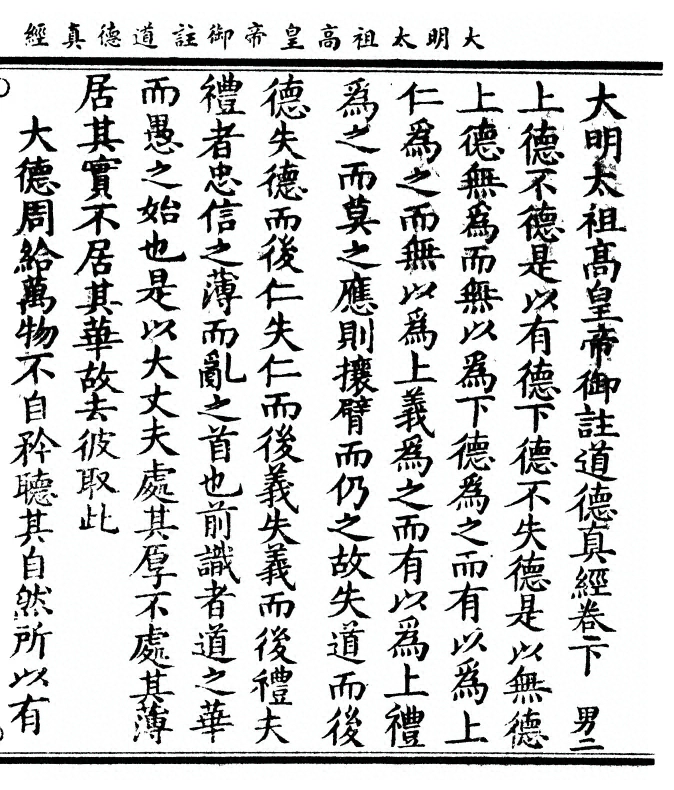 大明太祖高皇帝御註道德真經
大明太祖高皇帝御註道德真經卷下 男二
上德不德是以有德下德不失德是以無德
上德無爲而無以爲下德爲之而有以爲上
仁爲之而無以爲上義爲之而有以爲上禮
爲之而莫之應則攘臂而仍之故失道而後
德失德而後仁失仁而後義失義而後禮夫
禮者忠信之薄而亂之首也前識者道之華
而愚之始也是以大丈夫處其厚不處其薄
居其實不居其華故去彼取此
大德周給萬物不自矜聽其自然所以有